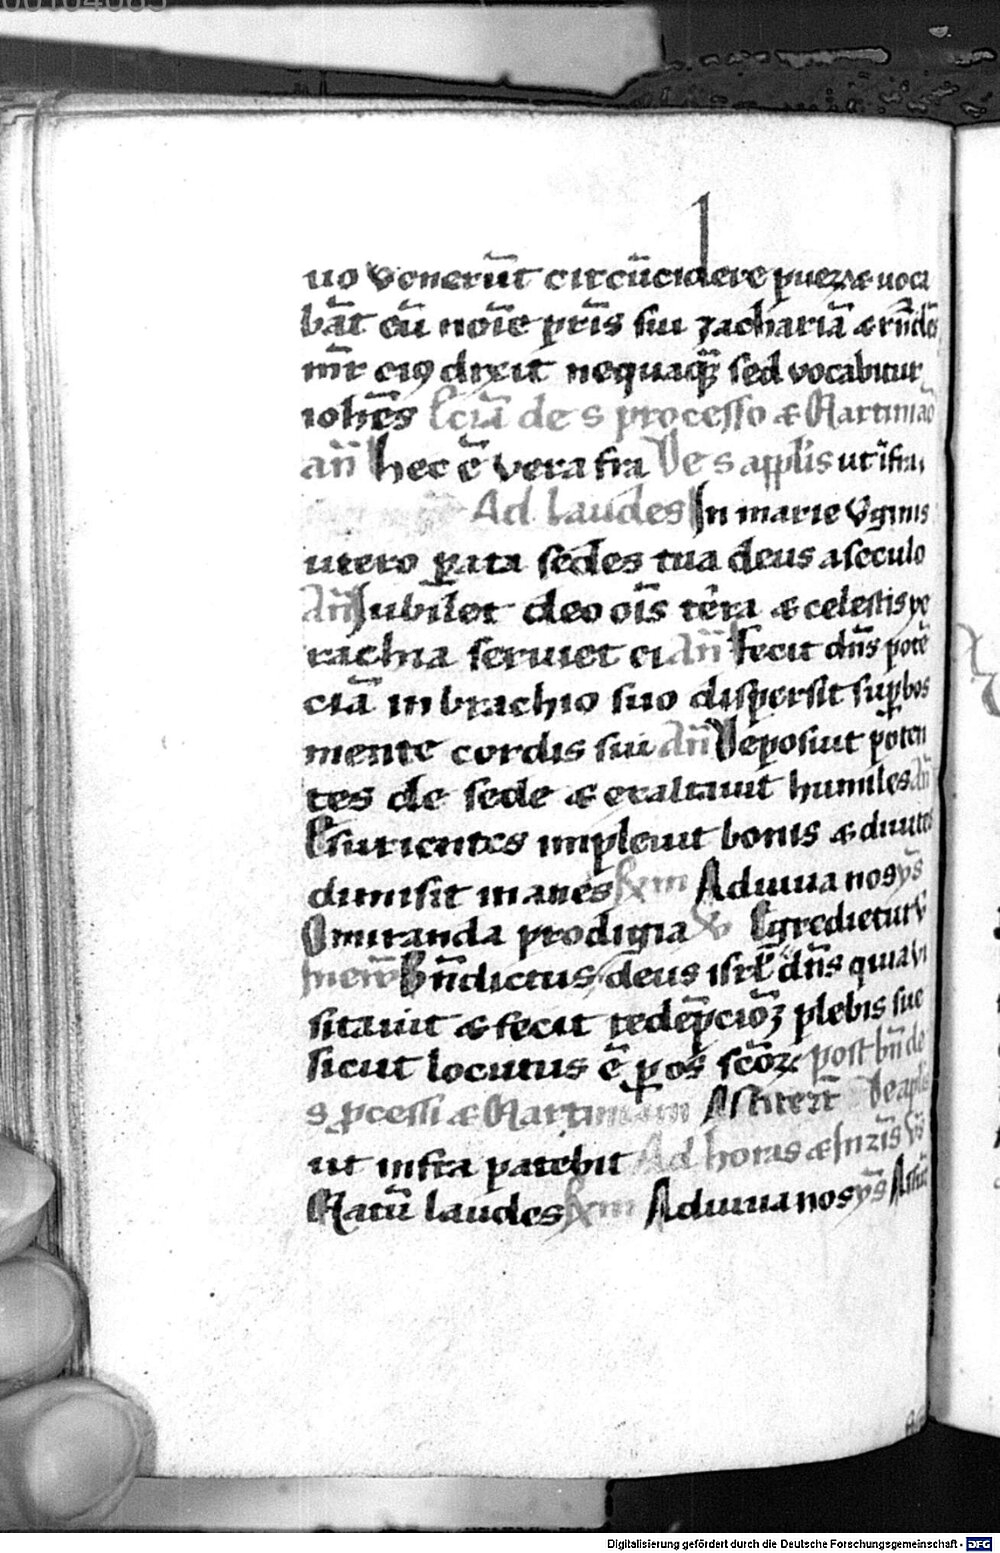 00104085
uo venerūt circūcidere puerꝫ & uoca
bāt eū noīe pr̄is sui zachariā & rn̄dēs
mr̄ eiꝯ dixit nequaqꝫ sed vocabitur
ioh̄es de s processo & Martiniāo
an̄ hec ē vera fr̄a De s applīs ut īfra,
Ad laudes In marie v̄ginis
utero ꝑata sedes tua deus a seculo
An̄ Jubilet deo oīs terra & celestis ye
rachia seruiet ei An̄ Fecit dn̄s potē
ciā in brachio suo dispersit suꝑbos
mente cordis sui An̄ Deposuit poten
tes de sede & exaltauit humiles An̄
Esurientes impleuit bonis & diuites
dimisit inanes Adiuua nos ys̄
O miranda prodigia Egredietur v̄
Bn̄dictus deus isrl̄ dn̄s quia vi
sitauit & fecit redēpcioꝫ plebis sue
sicut locutus ē ꝑ os scōꝝ post bn̄ de
s ꝓcessi & Martiniani Astiterūt De aplīs
ut infra patebit Ad horas &
Matū laudes Adiuua nos ys̄
Digitalisierung gefördert durch die Deutsche Forschungsgemeinschaft - DFG